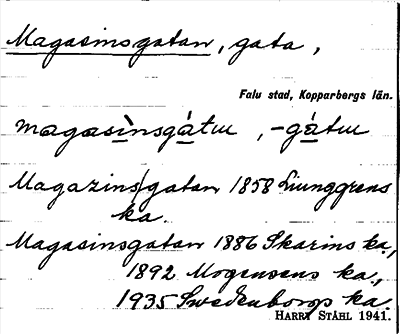 Magasinsgatan, gata,
Falu stad, Kopparbergs län.
magasìnsgátu, -gátu
Magazins/gatan 1858 Ljunggrens
ka.
Magasinsgatan 1886 Skarins ka.,
1892 Mogensens ka.,
1935 Swedenborgs ka.
HARRY STÅHL 1941.